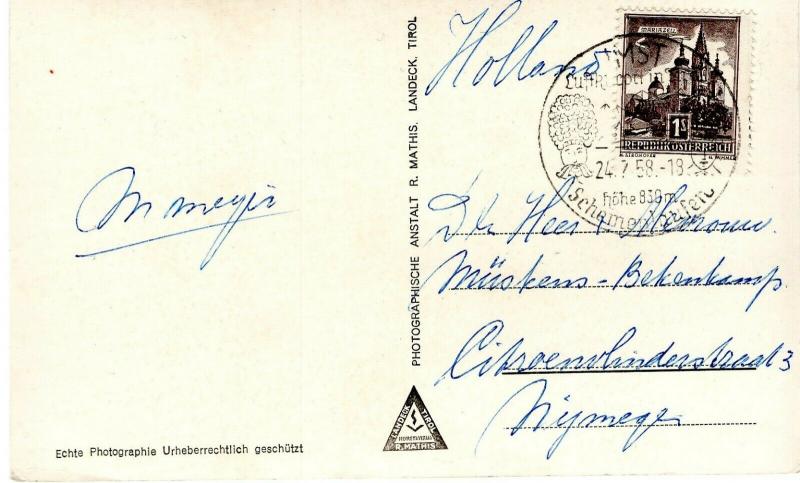 M meyer
Echte Photographie Urheberrechtlich geschützt
PHOTOGRAPHISCHE ANSTALT R. MATHIS. LANDECK. TIROL
LANDECK TIROL
R. MATHIS
Holland
MARIAZELL
1S
REPUBLIK ÖSTERREICH
IMST
Luftkurort im
24.7.58.-18
höhe 830m
De Heer &
Müskens-Bekenkamp.
Citroenvlinderstraat 3
Nijmegen